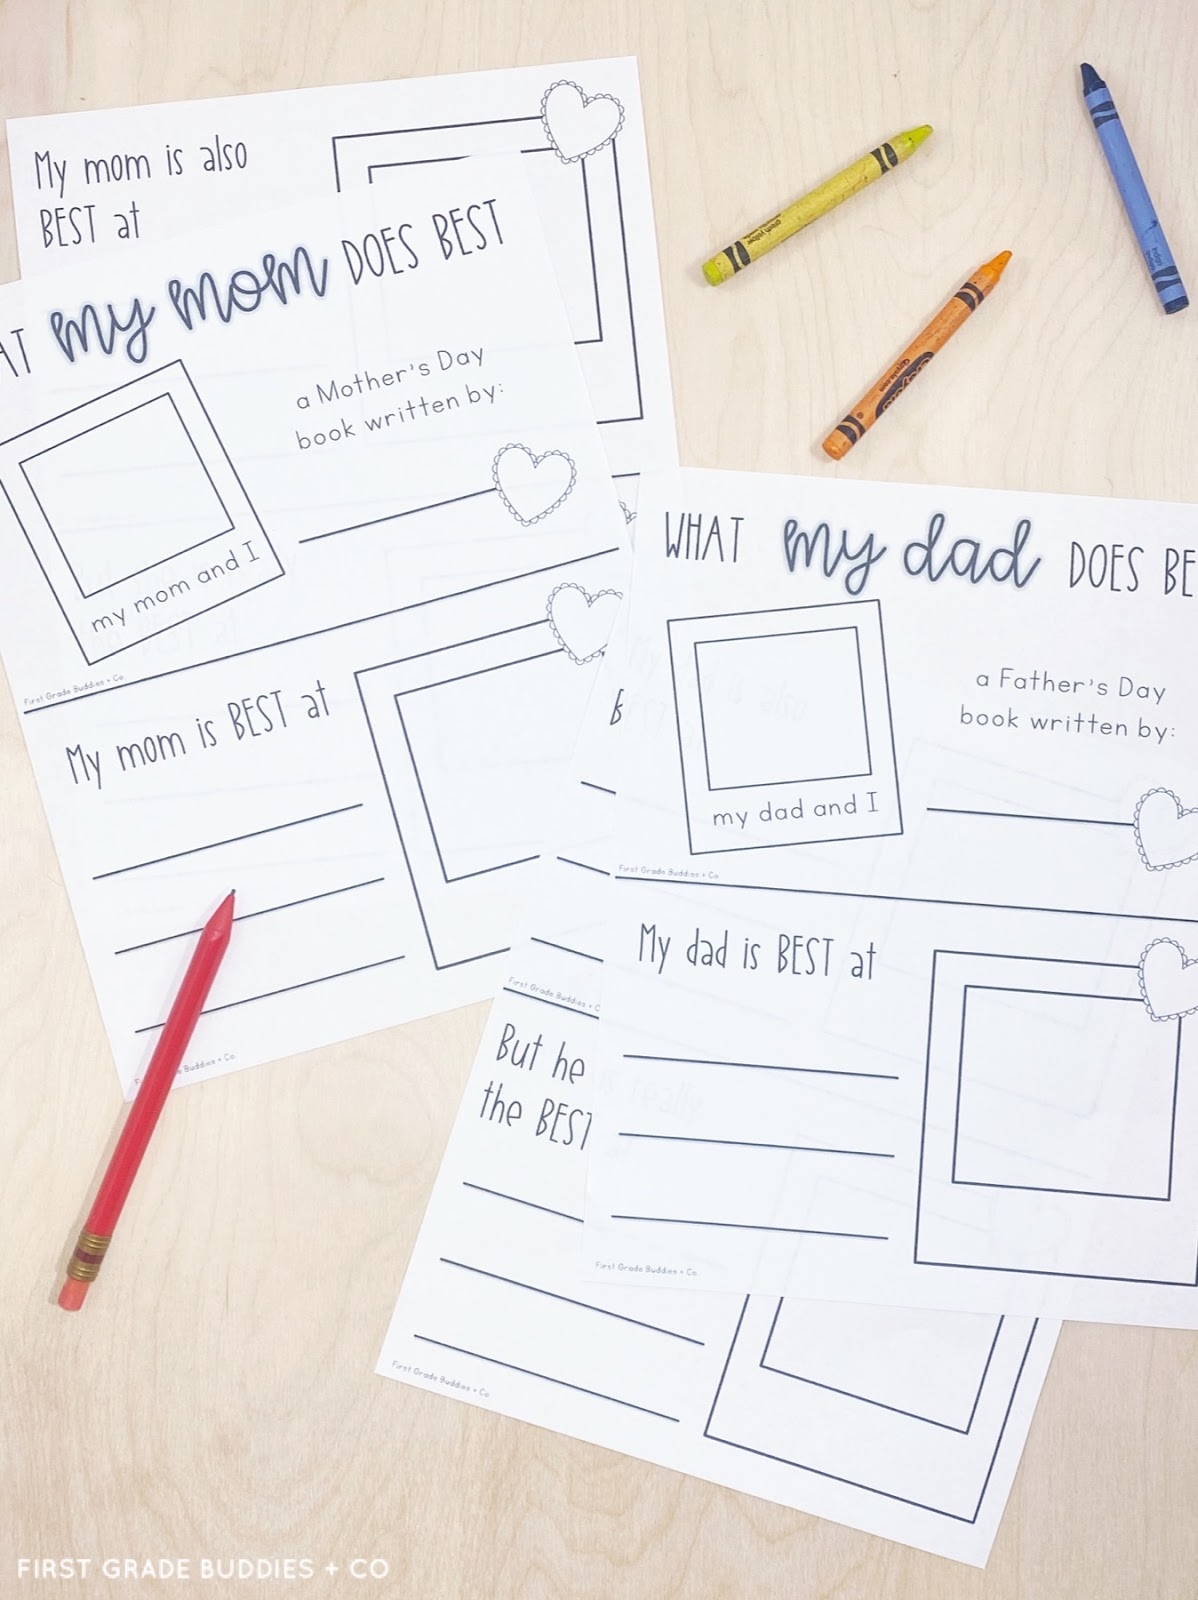 My mom is also
BEST at
my mom DOES BEST
a Mother's Day
book written by:
my mom and I
First Grade Buddies + Co.
My mom is BEST at
WHAT my dad DOES
a Father's Day
book written by:
my dad and I
First Grade Buddies + Co
My dad is BEST at
First Grade Buddies + Co
First Grade Buddies +
But he
the BEST
First Grade Buddies + Co
FIRST GRADE BUDDIES + CO